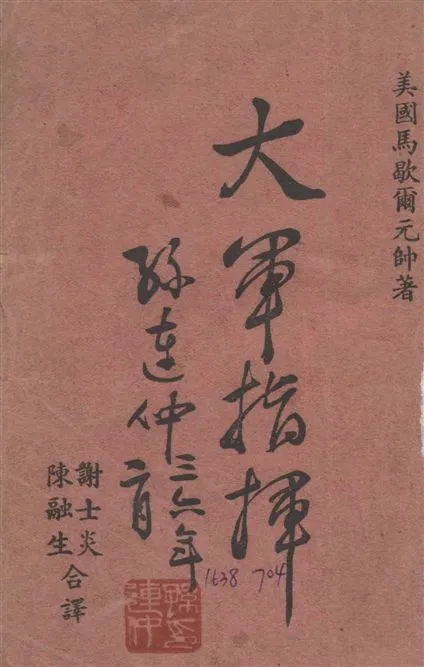 美國馬歇爾元帥著
大軍指揮
孫連仲
三六年
二月
謝士炎
陳融生
合譯
1638 704